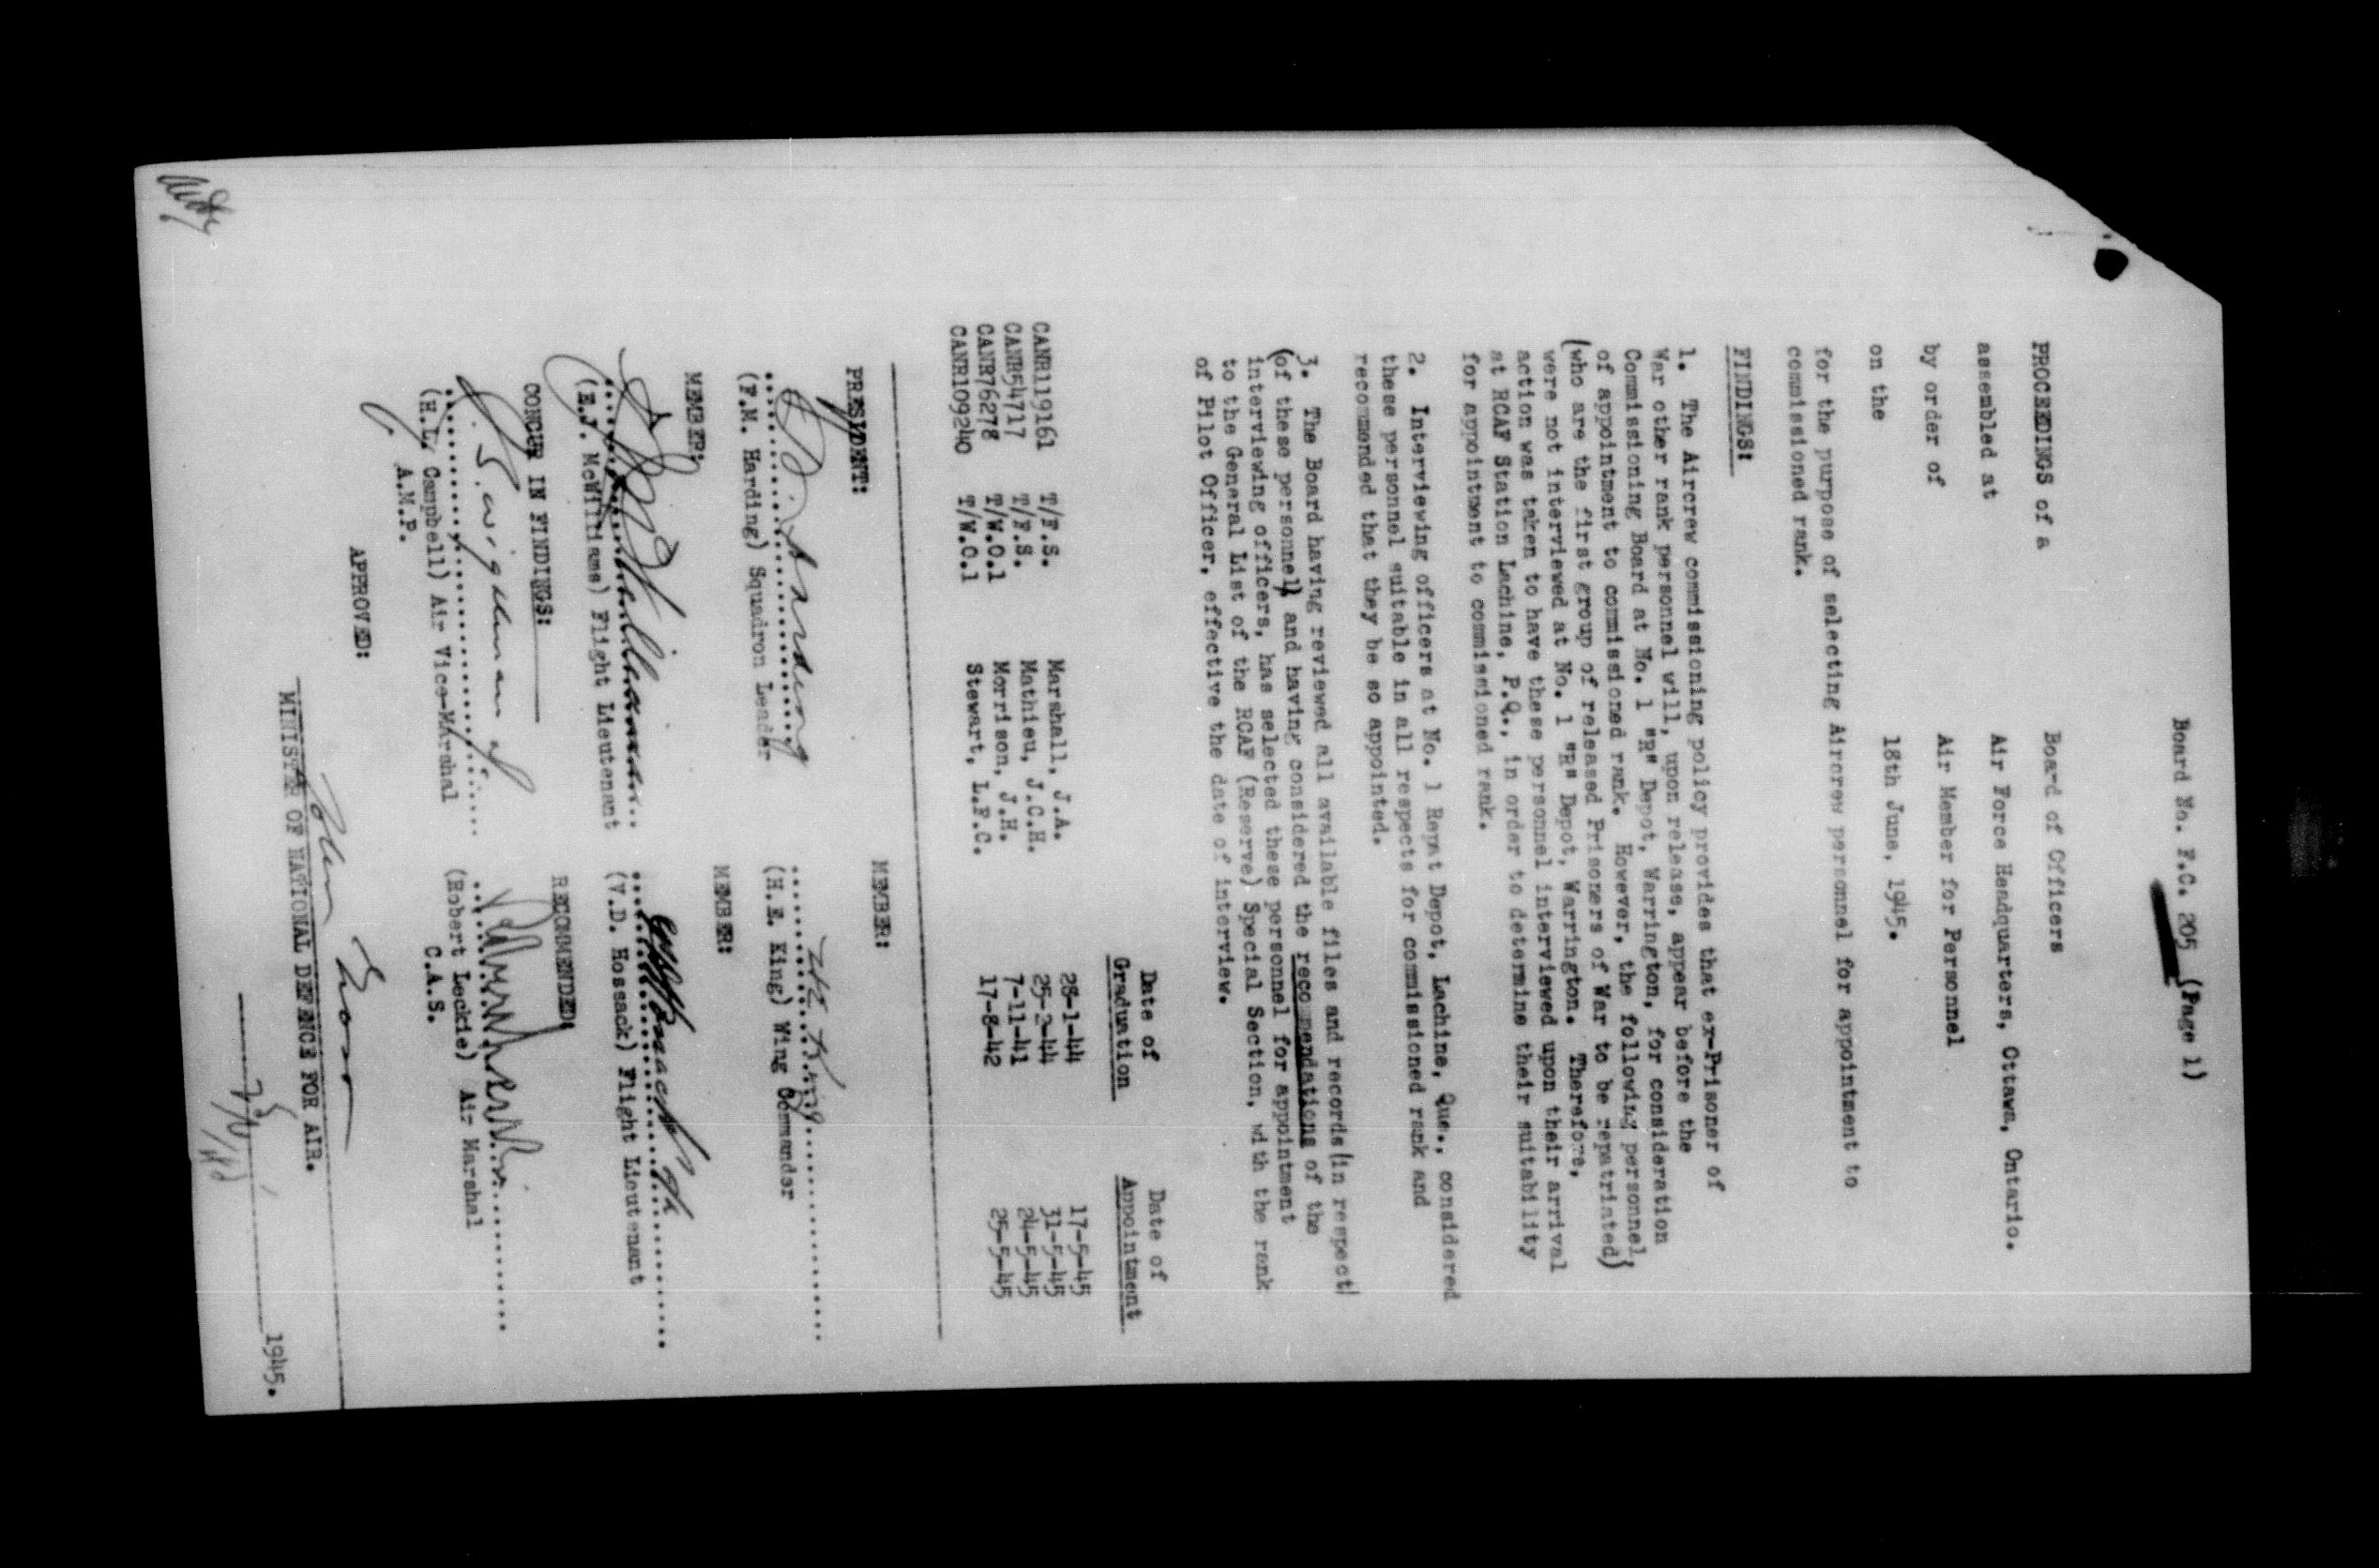 Board No. F.C. 205 (Page 1)
PROCEEDINGS of a Board of Officers
assembled at Air Force Headquarters, Ottawa, Ontario.
by order of Air Member for Personnel
on the 18th June, 1945.
for the purpose of selecting Aircrew personnel for appointment to
commissioned rank.
FINDINGS:
1. The Aircrew commissioning policy provides that ex-Prisoner of
War other rank personnel will, upon release, appear before the
Commissioning Board at No. 1 "R" Depot, Warrington, for consideration
of appointment to commissioned rank. However, the following personnel,
(who are the first group of released Prisoners of War to be repatriated)
were not interviewed at No. 1 "R" Depot, Warrington. Therefore,
action was taken to have these personnel interviewed upon their arrival
at RCAF Station Lachine, P.Q., in order to determine their suitability
for appointment to commissioned rank.
2. Interviewing officers at No. 1 Repat Depot, Lachine, Que., considered
these personnel suitable in all respects for commissioned rank and
recommended that they be so appointed.
3. The Board having reviewed all available files and records (in respect)
(of these personnel) and having considered the recommendations of the
interviewing officers, has selected these personnel for appointment
to the General List of the RCAF (Reserve) Special Section, with the rank
of Pilot Officer, effective the date of interview.
Date of Graduation Date of Appointment
CANR119161 T/F.S. Marshall, J.A. 28-1-44 17-5-45
CANR54717 T/F.S. Mathieu, J.C.H. 25-2-44 31-5-45
CANR76278 T/W.O.1 Morrison, J.H. 7-11-41 24-5-45
CANR109240 T/W.O.1 Stewart, L.F.C. 17-8-42 25-5-45
PRESIDENT: MEMBER:
(F.M. Harding) Squadron Leader (H.E. King) Wing Commander
MEMBER: MEMBER:
(E.J. McWilliams) Flight Lieutenant (V.D. Hossack) Flight Lieutenant
CONCUR IN FINDINGS: RECOMMENDED:
(H.L. Campbell) Air Vice-MArshal (Robert Leckie) Air Marshal
A.M.P. C.A.S.
APPROVED:
MINISTER OF NATIONAL DEFENCE FOR AIR.
1945.